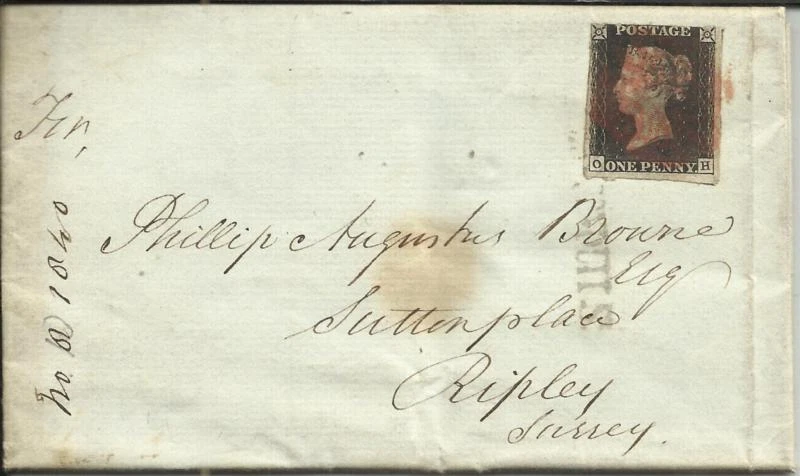 POSTAGE
O ONE PENNY H
For,
Phillip Augustus Browne
Esq
Sutton place
Ripley
Surrey.
1840